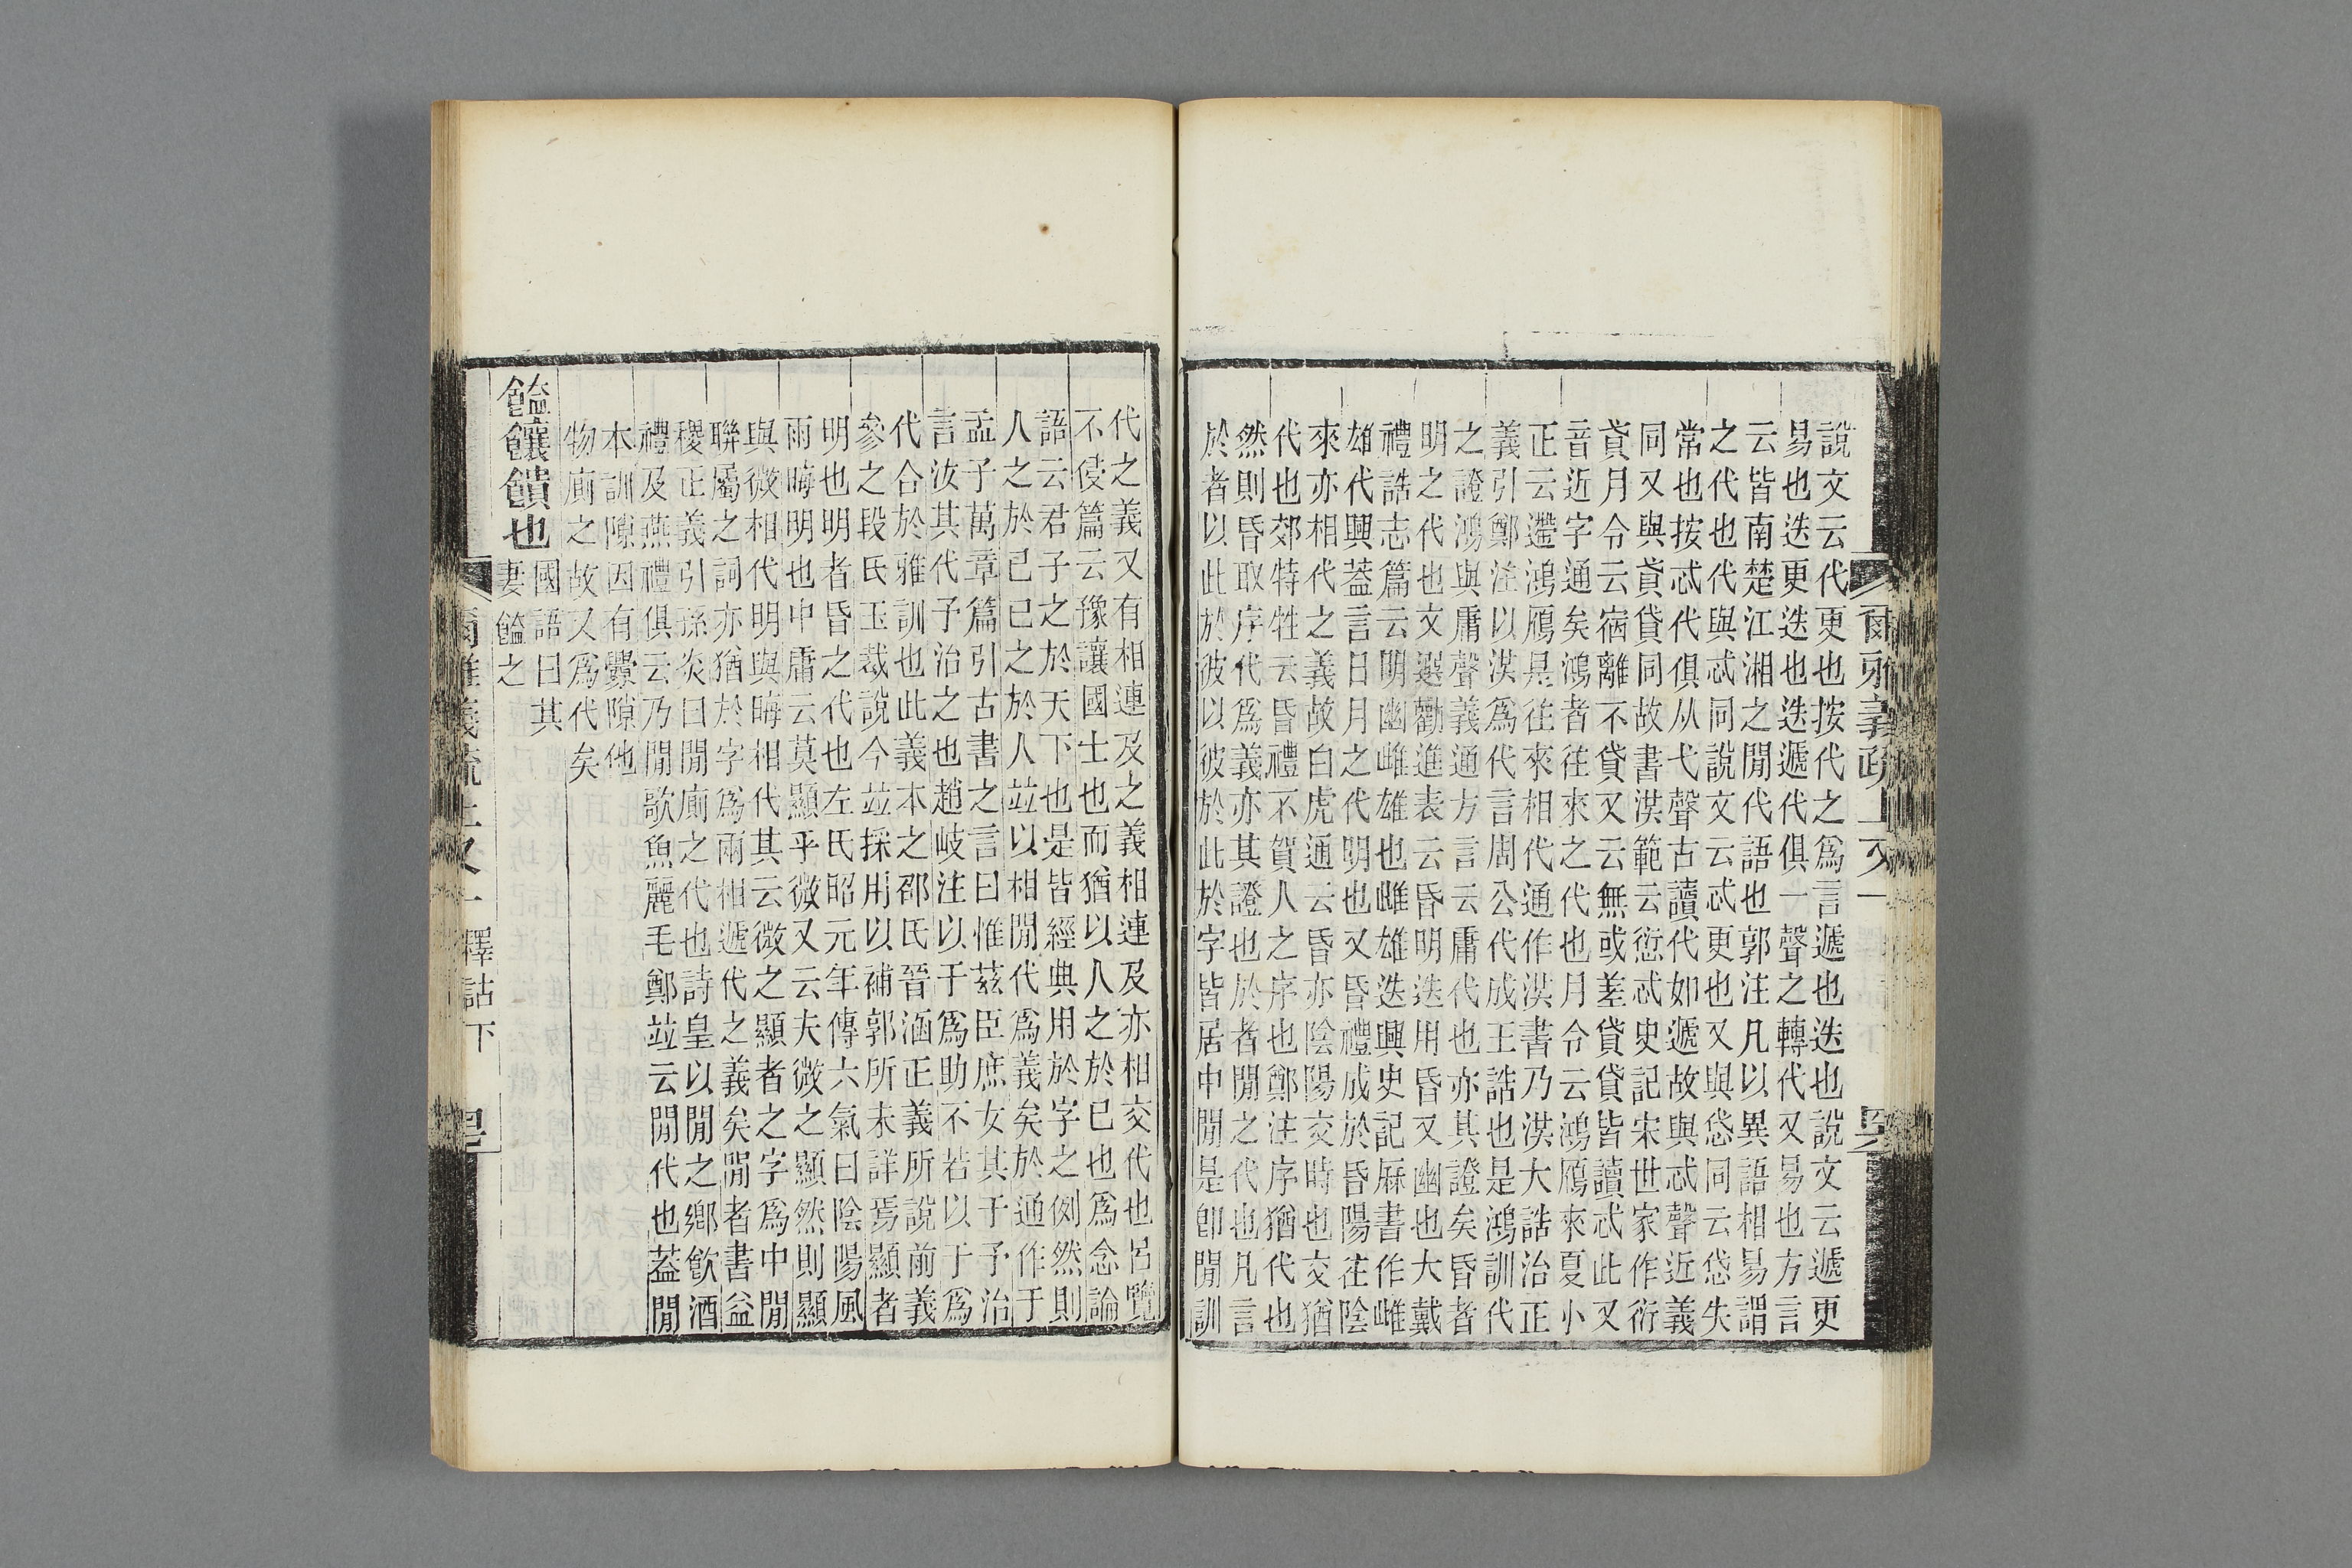 說文云代更也按代之為言遞也迭也說文云遞更
易也迭更迭也迭遞代俱一聲之轉代又易也方言
云皆南楚江湘之閒代語也郭注凡以異語相易謂
之代也代與忒同說文云忒更也又與恷同云恷失
常也按忒代俱从弋聲古讀代如遞故與忒聲近義
同又與貣貸同故書洪範云衍忒史記宋世家作衍
貣月令云宿離不貸又云無或差貸貸皆讀忒此又
音近字通矣鴻者往來之代也月令云鴻鴈來夏小
正云遰鴻鴈是往來相代通作洪書乃洪大誥治正
義引鄭注以洪為代言周公代成王誥也是鴻訓代
之證鴻與庸聲義通方言云庸代也亦其證矣昏者
明之代也文選勸進表云昏明迭用昏又幽也大戴
禮誥志篇云明幽雌雄也雌雄迭興史記厤書作雌
雄代興蓋言日月之代明也又昏禮成於昏陽往陰
來亦相代之義故白虎通云昏亦陰陽交時也交猶
代也郊特牲云昏禮不賀人之序也鄭注序猶代也
然則昏取序代為義亦其證也於者閒之代也凡言
於者以此於彼以彼於此於字皆居中閒是卽閒訓
爾雅義疏上又一
代之義又有相連及之義相連及亦相交代也呂覽
不侵篇云豫讓國士也而猶以人之於已也為念論
語云君子之於天下也是皆經典用於字之例然則
人之於已已之於人竝以相閒代為義矣於通作于
孟子萬章篇引古書之言曰惟茲臣庶女其于予治
言汝其代予治之也趙岐注以于為助不若以于為
代合於雅訓也此義本之邵氏晉涵正義所說前義
參之段氏玉裁說今竝採用以補郭所未詳焉顯者
明也明者昏之代也左氏昭元年傳六氣曰陰陽風
雨晦明明也中庸云莫顯乎微又云夫微之顯然則顯
與微相代明與晦相代其云微之顯者之字為中閒
聯屬之詞亦猶於字為兩相遞代之義矣閒者書益
稷正義引孫炎曰閒廁之代也詩皇以閒之鄉飲酒
禮及燕禮俱云乃閒歌魚麗毛鄭竝云閒代也蓋閒
本訓隙因有釁隙他
物廁之故又為代矣
饁饟饋也
國語曰其
妻饁之
爾雅義疏上又一 釋詁下